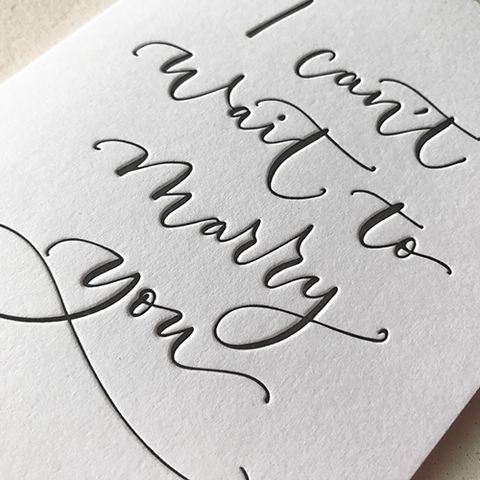 I can't
Wait to
Marry
you